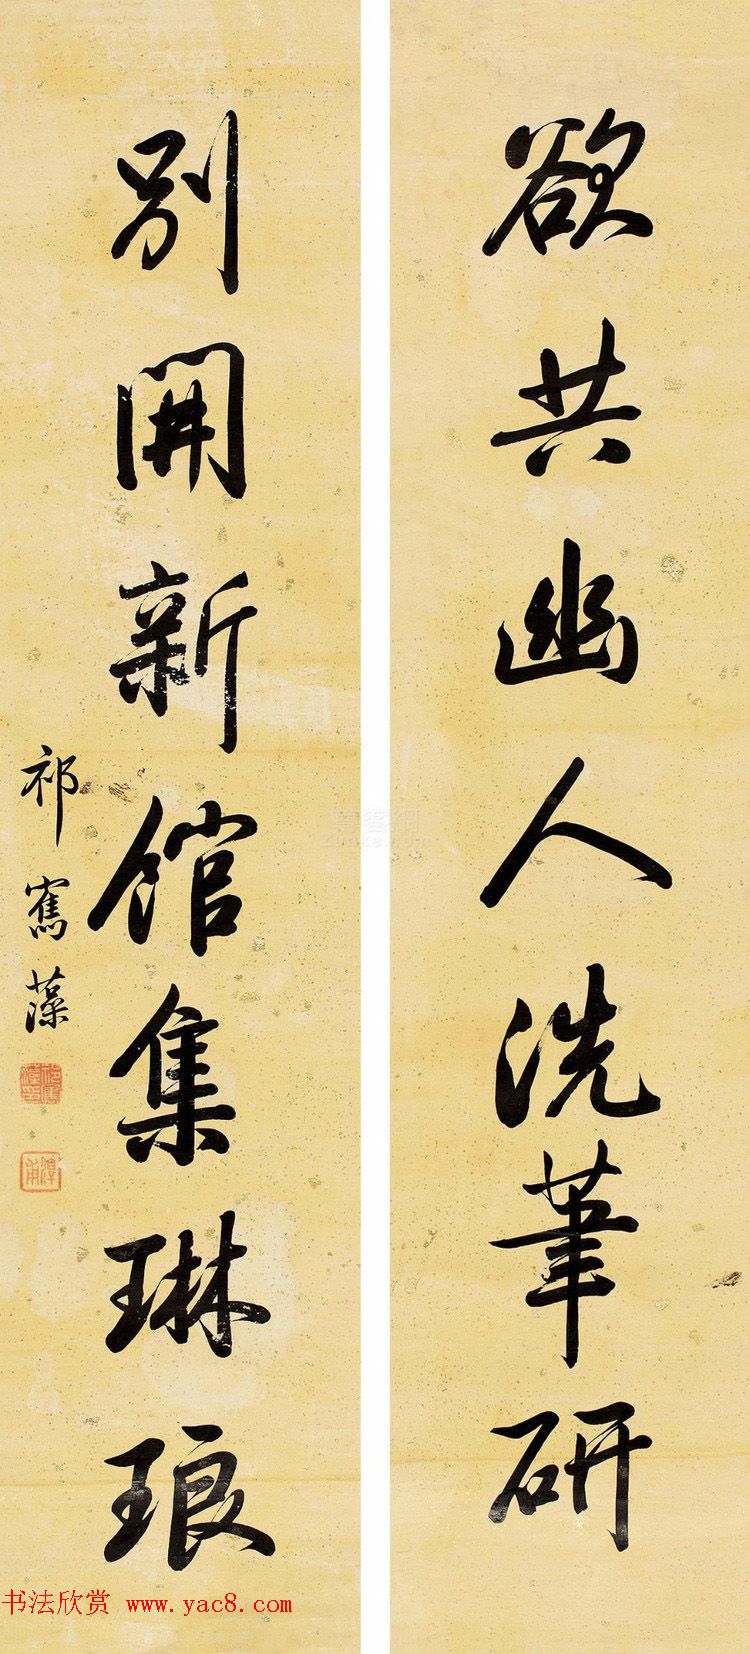 欲共幽人洗筆研
別開新館集琳琅
祁寯藻
书法欣赏 www.yac8.com